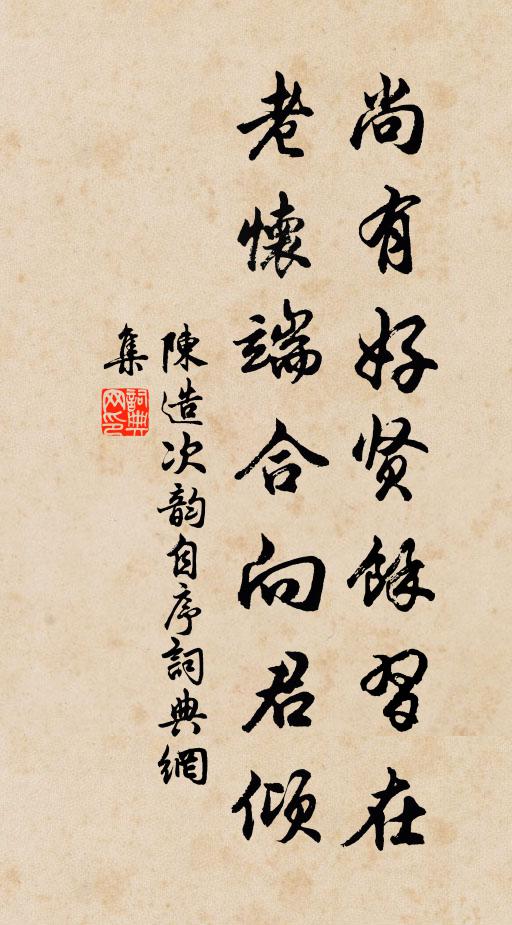 尚有好贤餘習在
老懷端合向君傾
陳造次韵自序詞典網
集
詞典网印